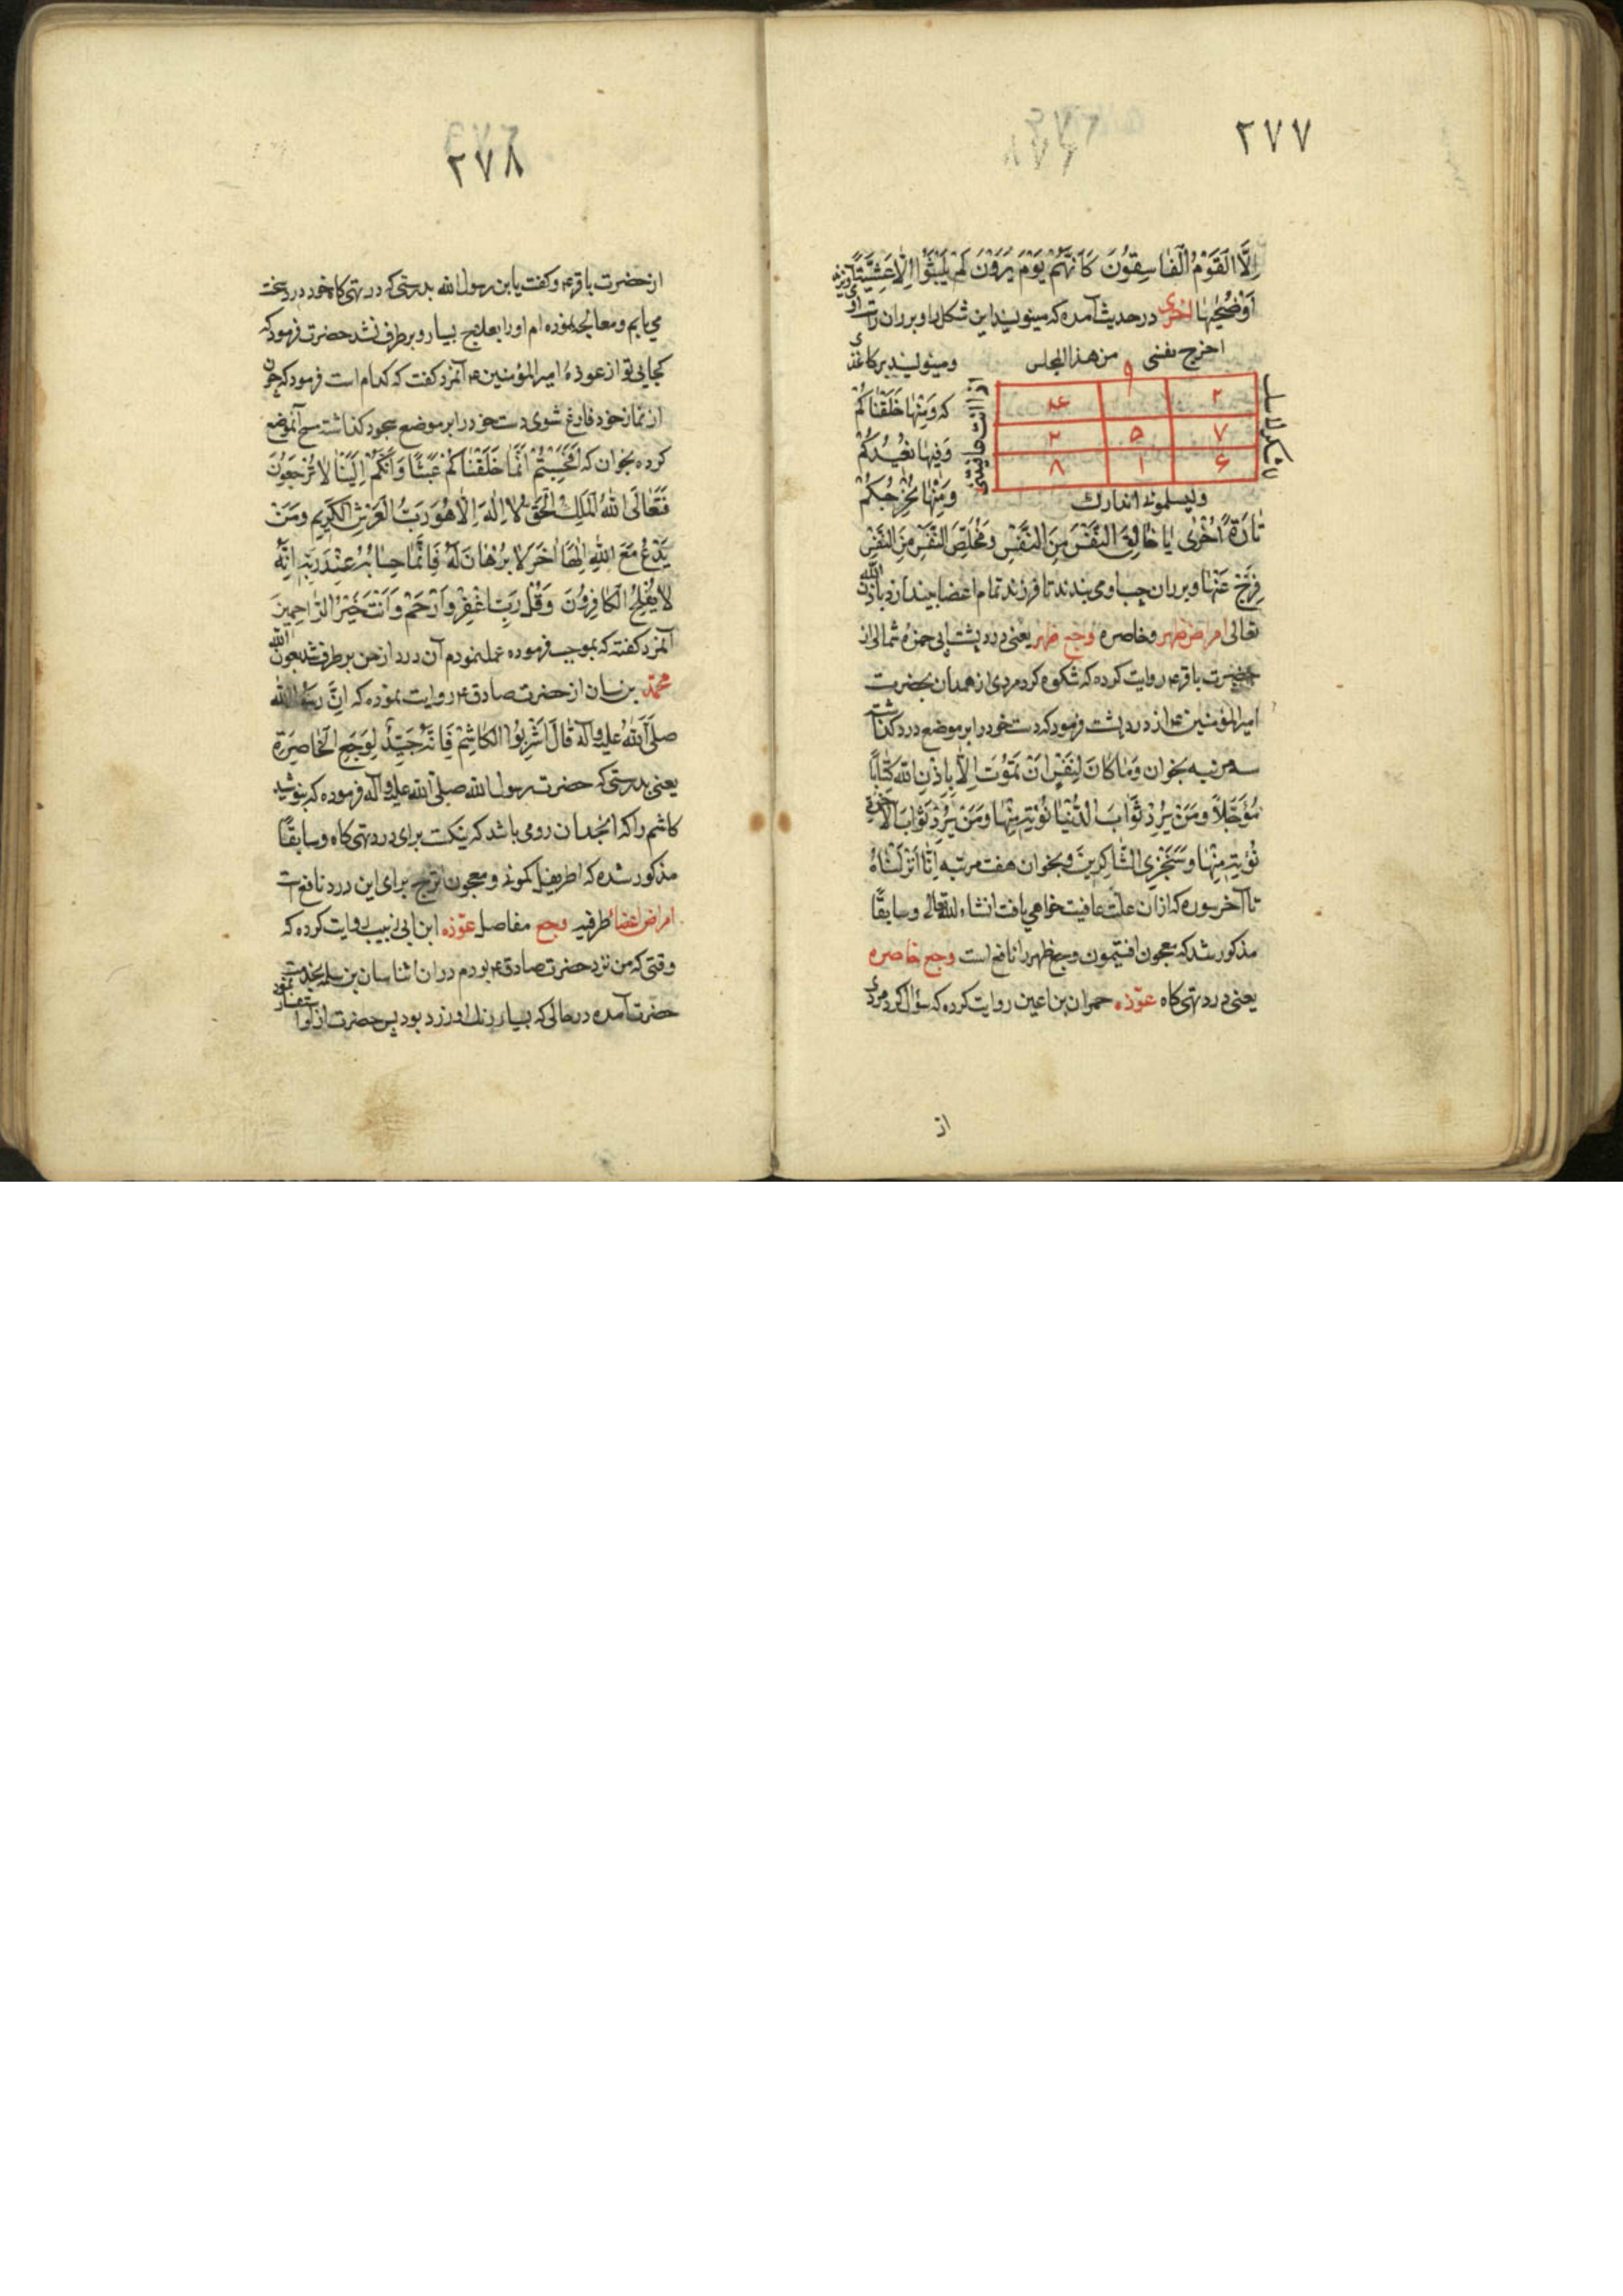 ٢٧٧
اِلَّا الْقَوْمُ الْفَاسِقُونَ كَاَنَّهُمْ يَوْمَ يَرَوْنَ لَمْ يَلْبَثُوا اِلَّا عَشِيَّةً
اَوْضُحٰيهَا اخری در حدیث آمده که مینویسد این شکل را و بر ران راست او
اخرج نفسی من هذا المجلس
ومینویسد بر کاغذی
٢ ٩ ۴
٧ ٥ ٣
۶ ١ ٨
که وَمِنْهَا خَلَقْنَاكُمْ
وَفِيهَا نُعِيْدُكُمْ
وَمِنْهَا نُخْرِجُكُمْ
تَارَةً اُخْرٰى يَا خَالِقَ النَّفْسِ مِنَ النَّفْسِ وَمُخَلِّصَ النَّفْسِ مِنَ النَّفْسِ
فَرِّجْ عَنْهَا و بر ران چپ او می بندند تا فرزند تمام اعضا بیندازد باذن الله
تعالی امراض ظهر وخاصره وجع ظهر یعنی درد پشت ابی حمزه ثمالی از
حضرت باقر ع روایت کرده که شکوه کرد مردی از همدان بحضرت
امیرالمؤمنین ع از درد پشت فرمود که دست خود را بر موضع درد گذاشته
سه مرتبه بخوان وَمَا كَانَ لِنَفْسٍ اَنْ تَمُوْتَ اِلَّا بِاِذْنِ اللّٰهِ كِتَابًا
مُؤَجَّلًا وَمَنْ يُرِدْ ثَوَابَ الدُّنْيَا نُؤْتِهِ مِنْهَا وَمَنْ يُرِدْ ثَوَابَ الْاٰخِرَةِ
نُؤْتِهِ مِنْهَا وَسَنَجْزِي الشَّاكِرِينَ و بخوان هفت مرتبه اِنَّا اَنْزَلْنَاهُ
تا آخر سوره که ازان علت عافیت خواهی یافت انشاء الله تعالی وسابقًا
مذکور شد که معجون افتیمون وجع ظهر را نافع است وجع خاصره
یعنی درد تهی کاه عوّذه حمران بن اعین روایت کرده که سؤال کرد مردی
از
٢٧٨
از حضرت باقر ع وگفت یا بن رسول الله بدرستی که در تهی کاه خود درد سخت
می یابم ومعالجه نموده ام او را بعلاج بسیار و برطرف نشد حضرت فرمود که
کجایی تو از عوذهٔ امیرالمؤمنین ع آنمرد گفت که کدام است فرمود که چون
از نماز خود فارغ شوی دست خود را بر موضع سجود گذاشته مسح آنموضع
کرده بخوان که اَفَحَسِبْتُمْ اَنَّمَا خَلَقْنَاكُمْ عَبَثًا وَاَنَّكُمْ اِلَيْنَا لَا تُرْجَعُوْنَ
فَتَعَالَى اللّٰهُ الْمَلِكُ الْحَقُّ لَا اِلٰهَ اِلَّا هُوَ رَبُّ الْعَرْشِ الْكَرِيمِ وَمَنْ
يَدْعُ مَعَ اللّٰهِ اِلٰهًا اٰخَرَ لَا بُرْهَانَ لَهُ فَاِنَّمَا حِسَابُهُ عِنْدَ رَبِّهِ اِنَّهُ
لَا يُفْلِحُ الْكَافِرُوْنَ وَقُلْ رَبِّ اغْفِرْ وَارْحَمْ وَاَنْتَ خَيْرُ الرَّاحِمِينَ
آنمرد گفته که بموجب فرموده عمل نمودم آن درد از من برطرف شد بعون الله
محمّد بن سنان از حضرت صادق ع روایت نموده که اِنَّ رَسُولَ اللّٰه
صلی الله علیه وآله قَالَ اشْرَبُوا الْكَاشِمَ فَاِنَّهُ جَيِّدٌ لِوَجَعِ الْخَاصِرَةِ
یعنی بدرستی که حضرت رسول الله صلی الله علیه وآله فرموده که بنوشید
کاشم را که انجدان رومی باشد که نیکست برای درد تهی کاه وسابقًا
مذکور شده که اطریفل کمونی ومعجون اترج برای این درد نافع است
امراض اعضاء طرفیه وجع مفاصل عوّذه ابن ابی زینب روایت کرده که
وقتی که من نزد حضرت صادق ع بودم دران اثنا سنان بن سلمه بخدمت
حضرت آمده در حالی که بسیار رنگ او زرد بود پس حضرت از او استفسار نمود